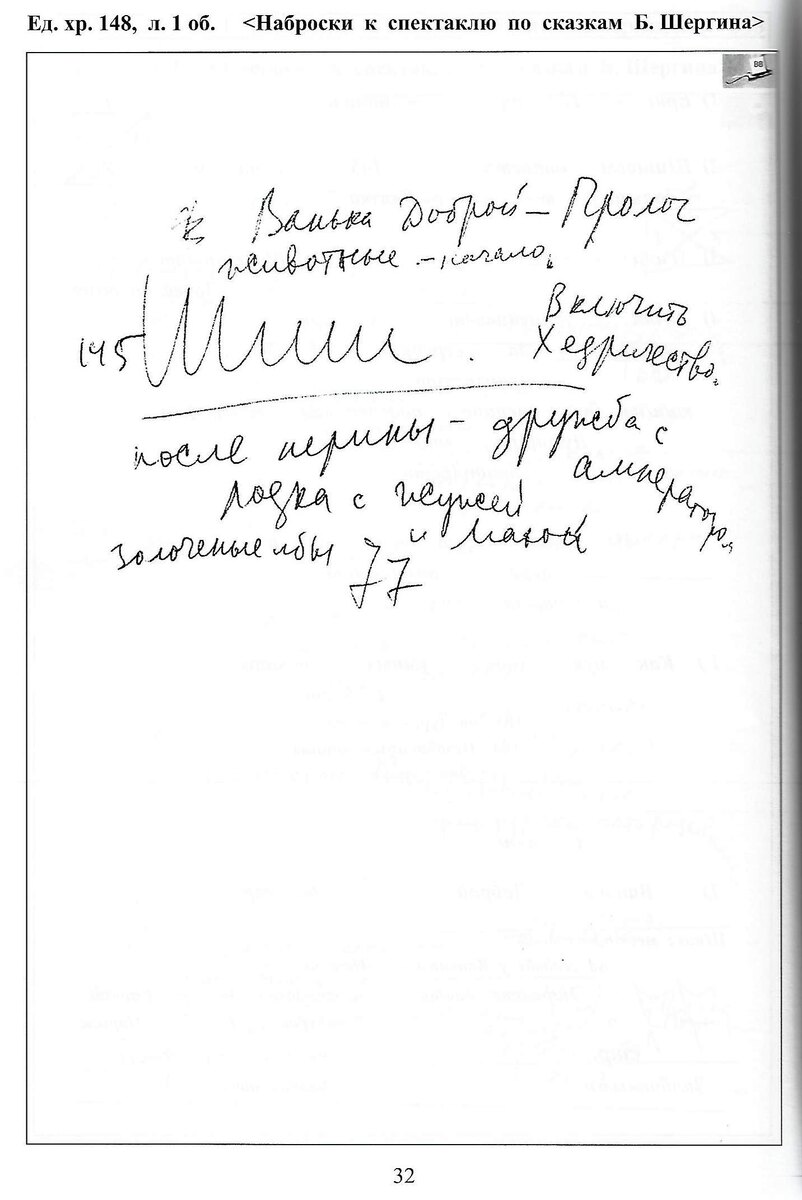 Ед. хр. 148, л. 1 об. <Наброски к спектаклю по сказкам Б. Шергина>
ВВ
Ванька Доброй – Пролог
животные – начало.
145 Шиш. Включить
Хедричество.
после перины – дружба с
амператором
лодка с жужей
золоченые лбы и
77
32